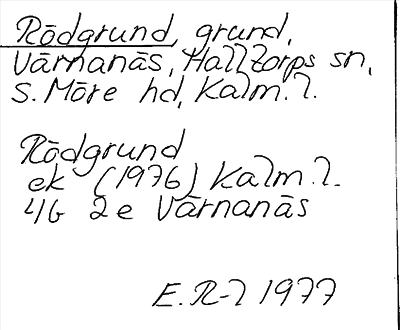 Rödgrund, grund,
Värnanäs, Halltorps sn,
S. Möre hd, Kalm. l.
Rödgrund
ek (1976) Kalm. l.
4G 2e Värnanäs
E. R-l 1977